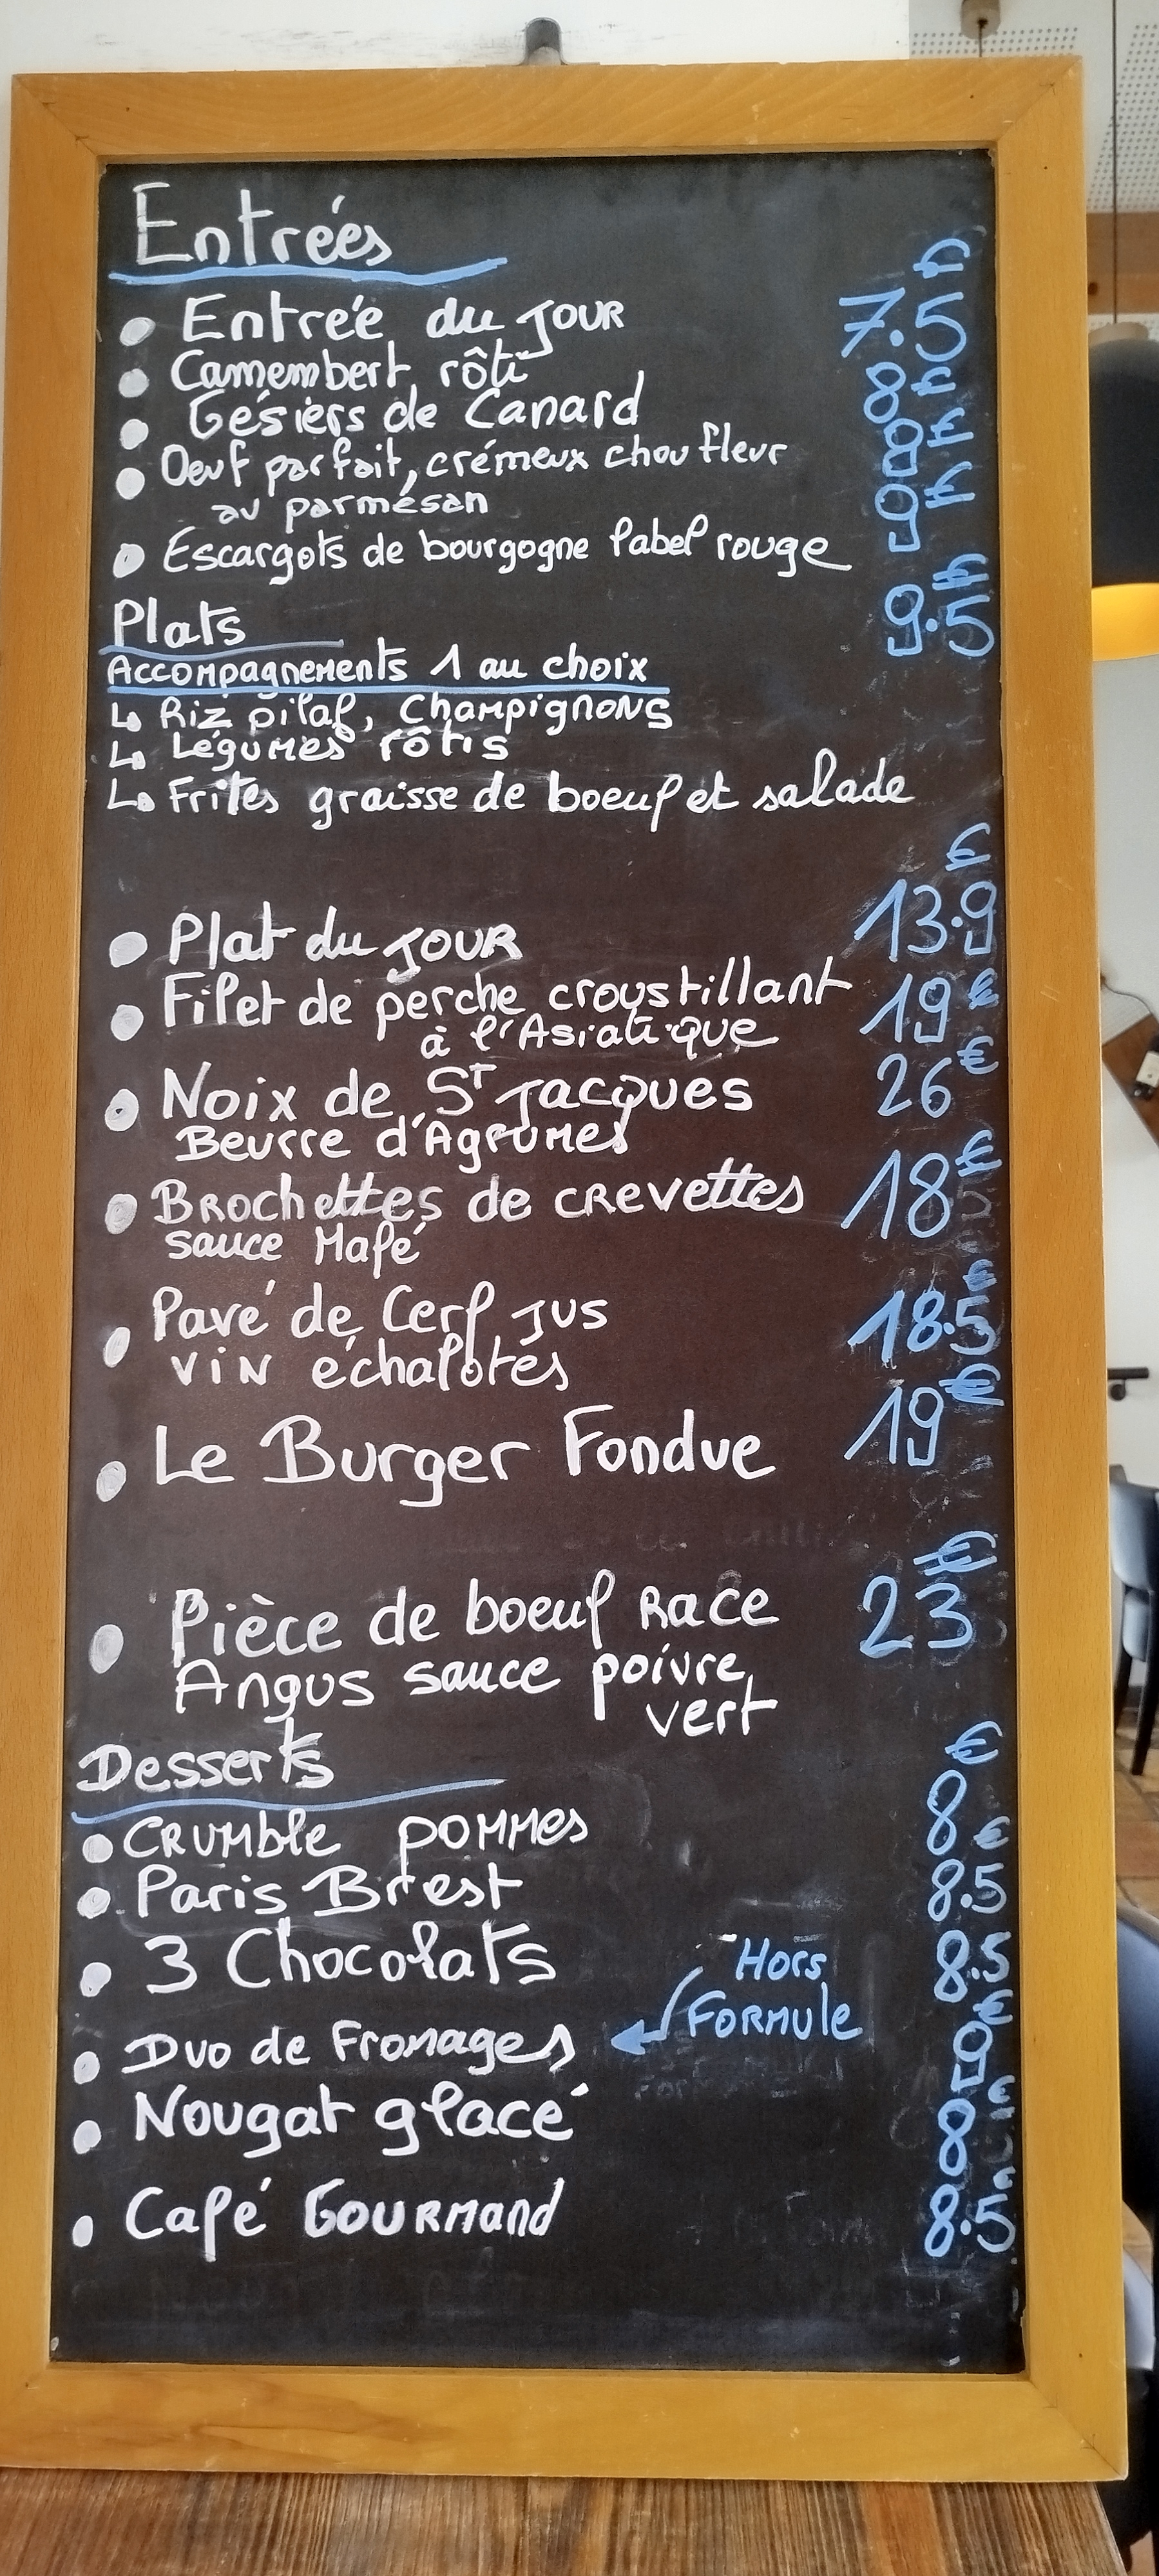 Entrées
• Entrée du JOUR 7.5€
• Camembert rôti 8€
• Gésiers de Canard 8€
• Oeuf parfait, crémeux chou fleur 9€
au parmésan
• Escargots de bourgogne label rouge 9.5€
Plats
Accompagnements 1 au choix
↳ Riz pilaf, Champignons
↳ Légumes rôtis
↳ Frites graisse de boeuf et salade
• Plat du JOUR 13.9€
• Filet de perche croustillant 19€
à l'Asiatique
• Noix de ST Jacques 26€
Beurre d'Agrumes
• Brochettes de crevettes 18€
sauce Mafé
• Pavé de Cerf jus 18.5€
vin échalotes
• Le Burger Fondue 19€
• Pièce de boeuf Race 23€
Angus sauce poivre
vert
Desserts
• CRUMble POMMes 8€
• Paris Brest 8.5€
• 3 Chocolats 8.5
Hors
FORMule
• Duo de Fromages 9€
• Nougat glacé 8€
• Café Gourmand 8.5€